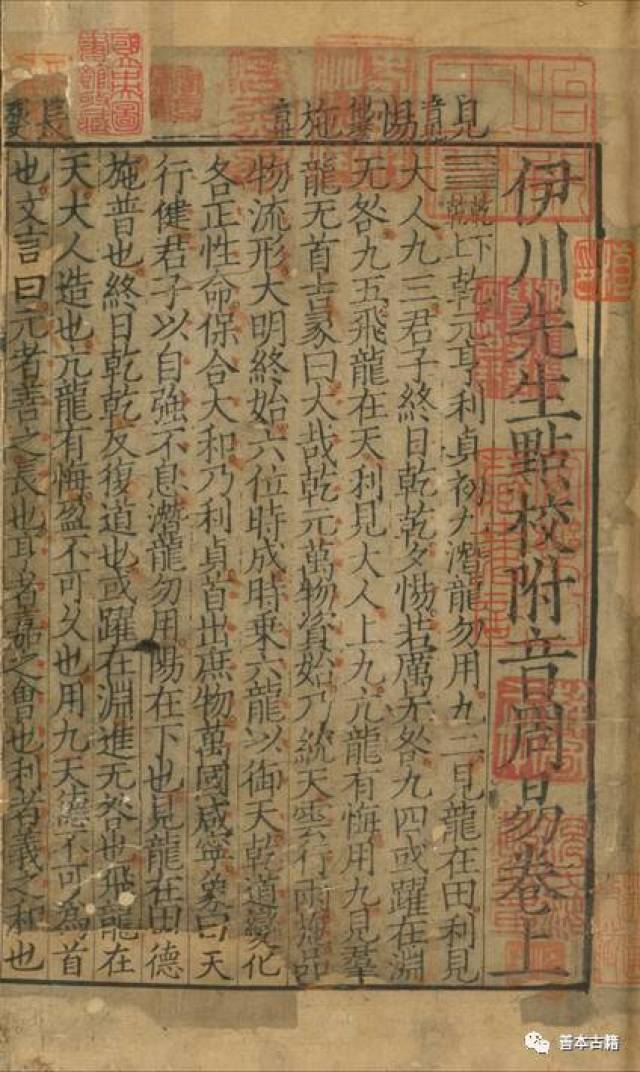 見
惕
施
長
伊川先生點校附音周易卷上
䷀乾下乾上乾元亨利貞初九潛龍勿用九二見龍在田利見
大人九三君子終日乾乾夕惕若厲无咎九四或躍在淵
无咎九五飛龍在天利見大人上九亢龍有悔用九見羣
龍无首吉彖曰大哉乾元萬物資始乃統天雲行雨施品
物流形大明終始六位時成時乘六龍以御天乾道變化
各正性命保合大和乃利貞首出庶物萬國咸寧象曰天
行健君子以自強不息潛龍勿用陽在下也見龍在田德
施普也終日乾乾反復道也或躍在淵進无咎也飛龍在
天大人造也亢龍有悔盈不可久也用九天德不可為首
也文言曰元者善之長也亨者嘉之會也利者義之和也
善本古籍